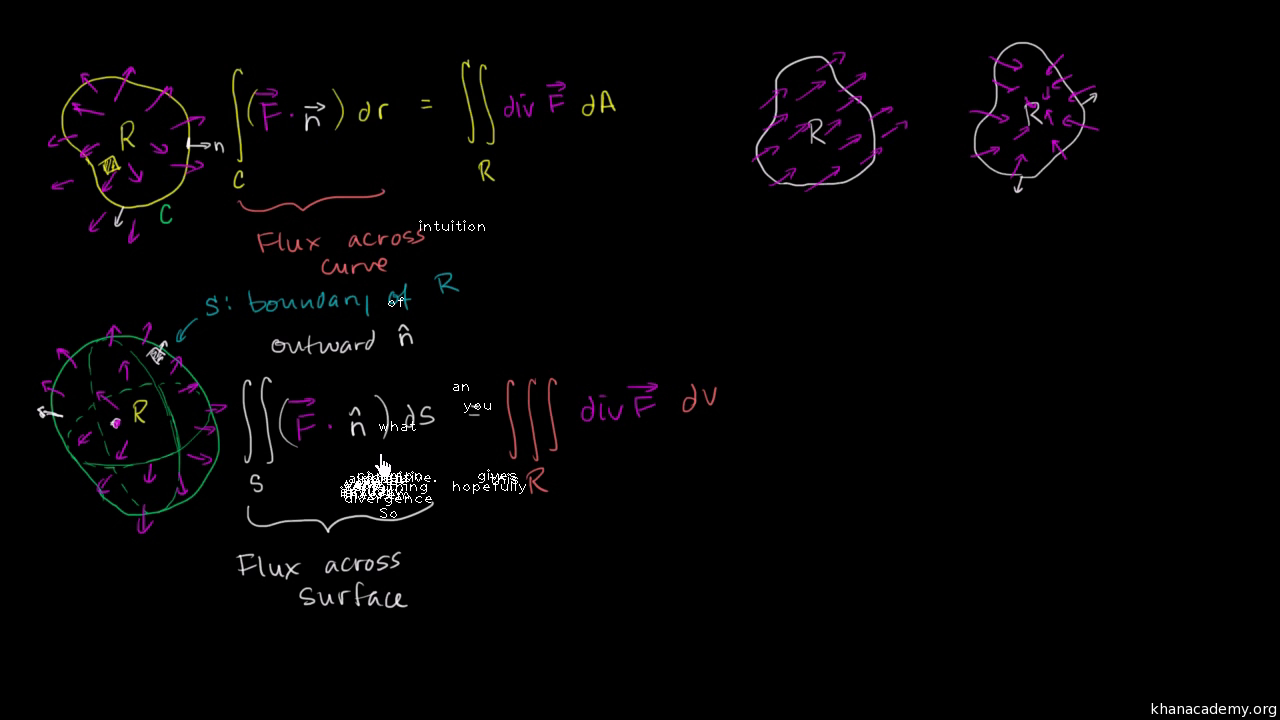 ∫_C (F⃗ · n⃗) dr = ∬_R div F⃗ dA
R
n
C
R
R
Flux across
curve
intuition
S: boundary of R
of
outward n̂
R
∬_S (F⃗ · n̂) dS = ∭_R div F⃗ dV
an
you
what
gives
hopefully
divergence
So
Flux across
surface
khanacademy.org